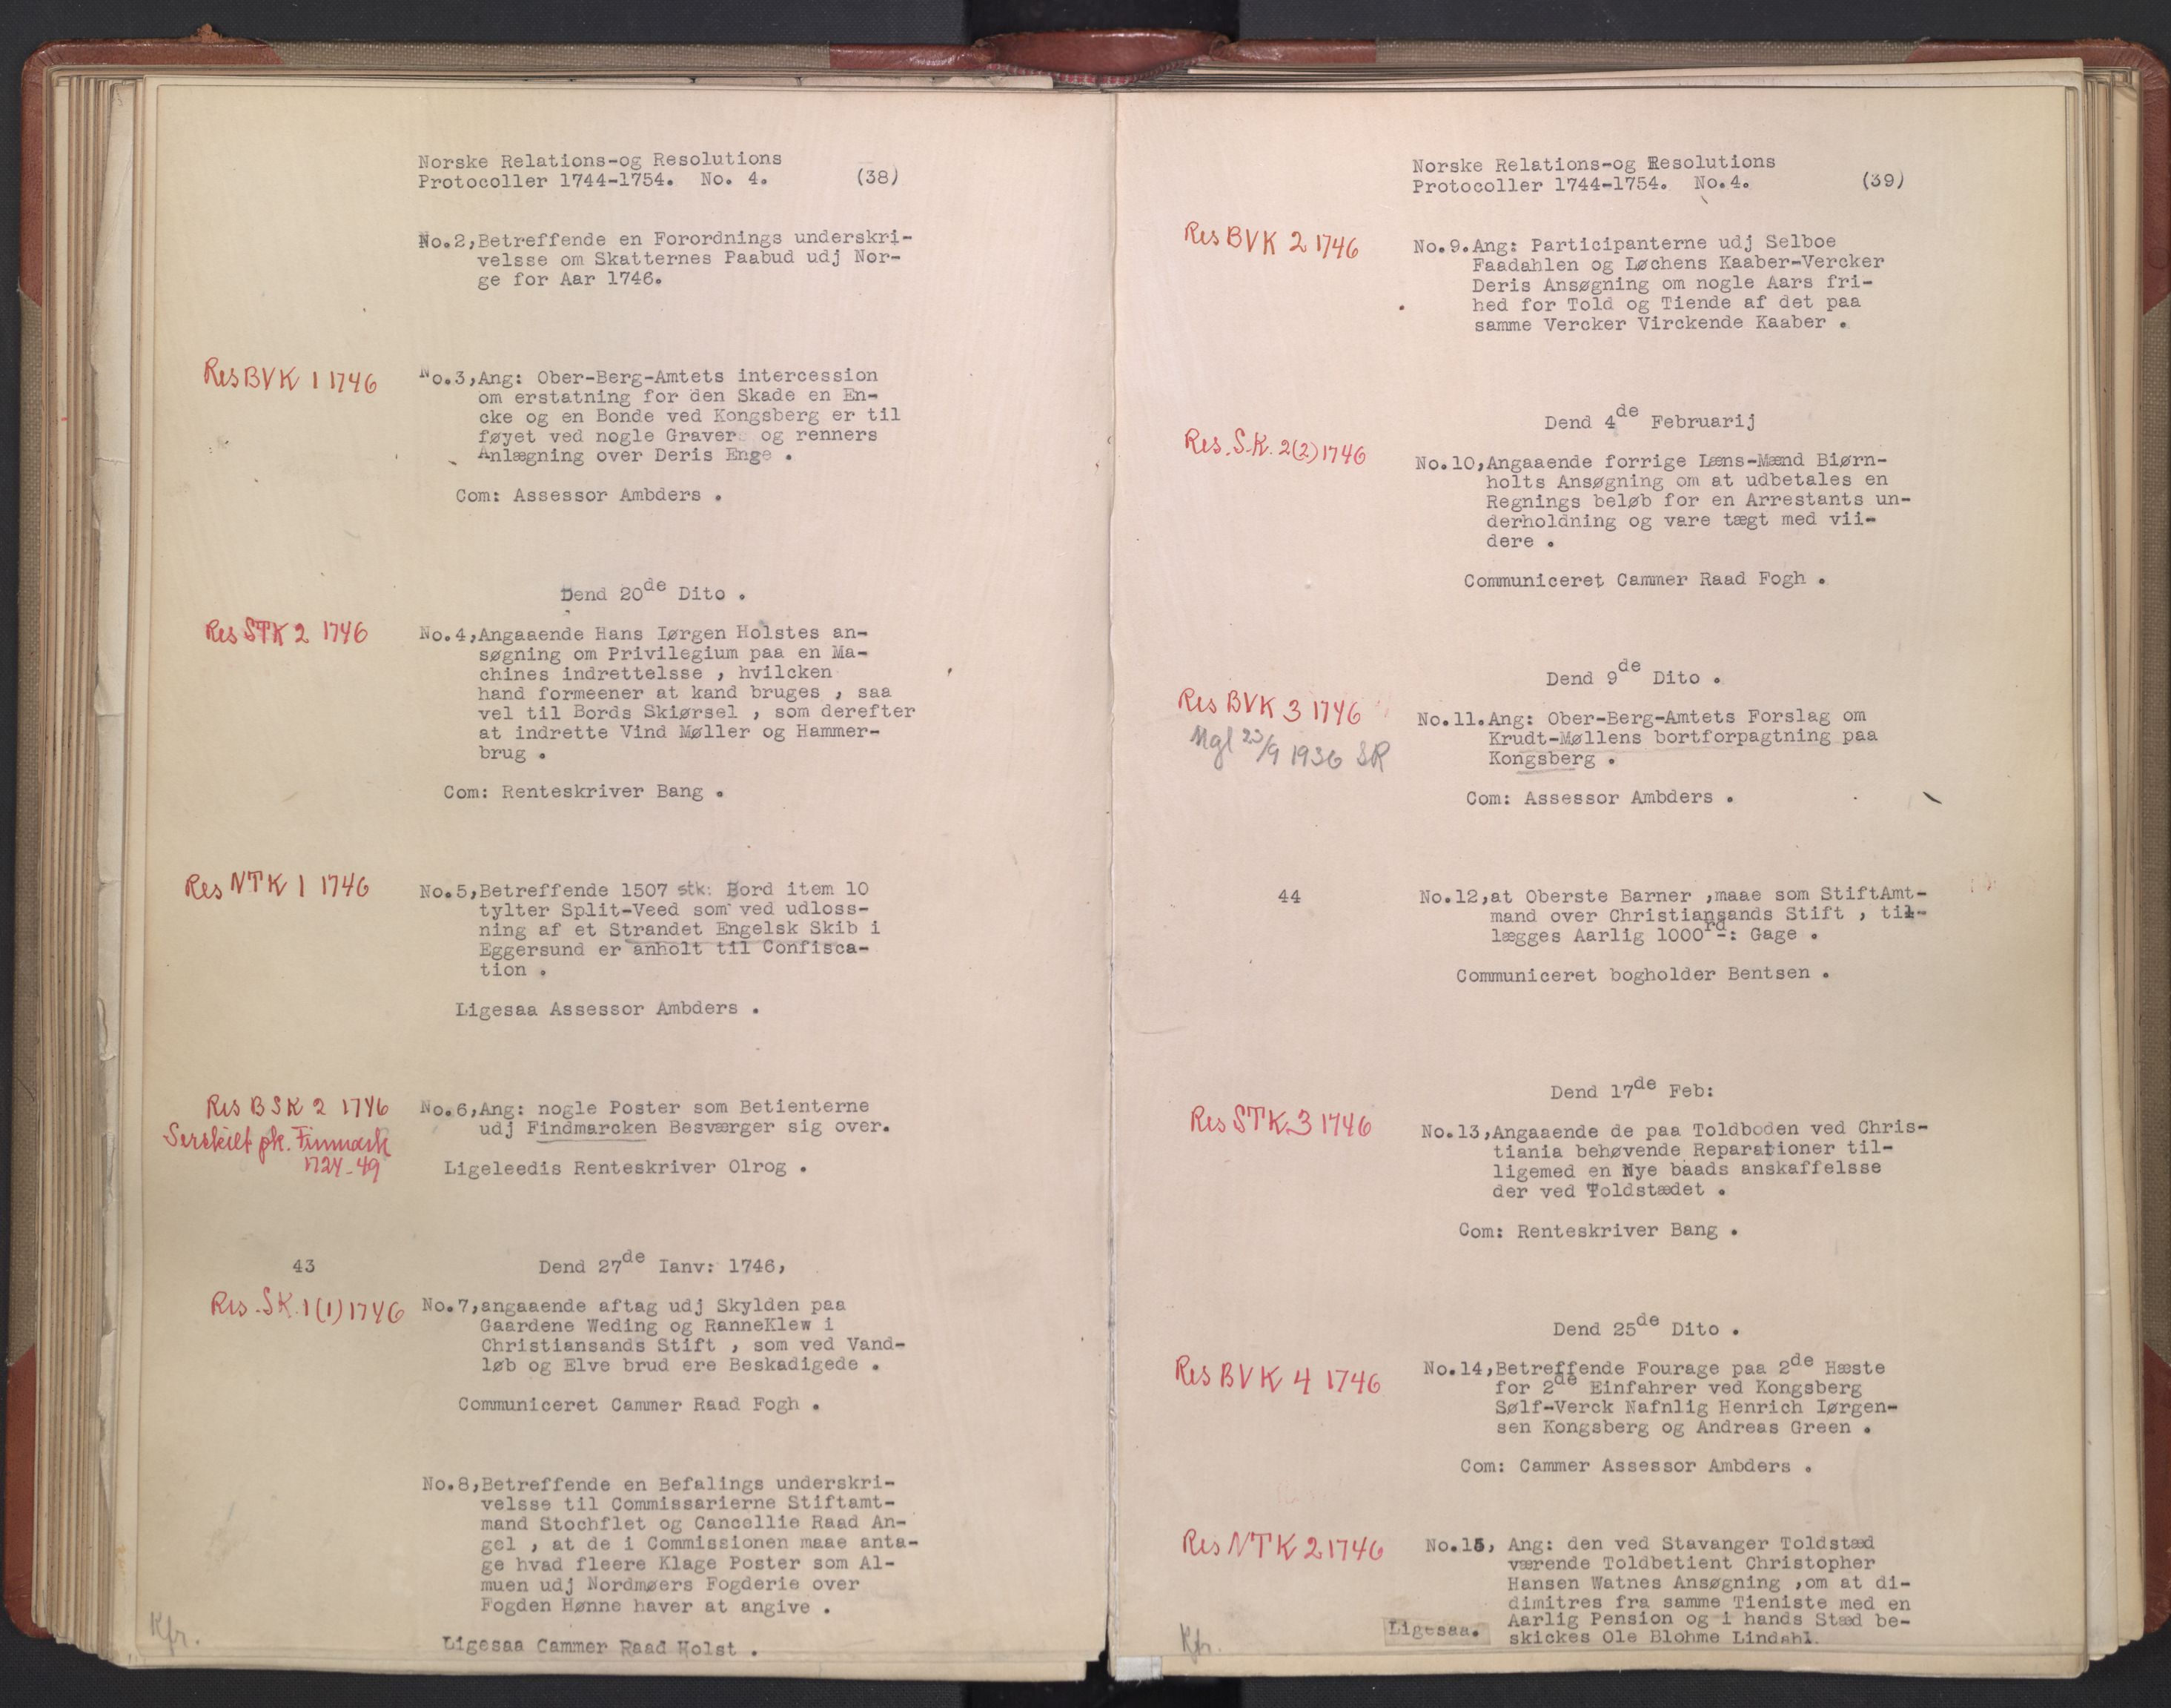 Norske Relations-og Resolutions
Protocoller 1744-1754. No. 4. (38)
No.2,Betreffende en Forordnings underskri-
velsse om Skatternes Paabud udj Nor-
ge for Aar 1746.
Res BVK 1 1746
No.3,Ang: Ober-Berg-Amtets intercession
om erstatning for den Skade en En-
cke og en Bonde ved Kongsberg er til
føyet ved nogle Graver og renners
Anlægning over Deris Enge .
Com: Assessor Ambders .
Dend 20de Dito .
Res STK 2 1746
No.4,Angaaende Hans Iørgen Holstes an-
søgning om Privilegium paa en Ma-
chines indrettelsse , hvilcken
hand formeener at kand bruges , saa
vel til Bords Skiørsel , som derefter
at indrette Vind Møller og Hammer-
brug .
Com: Renteskriver Bang .
Res NTK 1 1746
No.5,Betreffende 1507 stk: Bord item 10
tylter Split-Veed som ved udloss-
ning af et Strandet Engelsk Skib i
Eggersund er anholt til Confisca-
tion .
Ligesaa Assessor Ambders .
Res BSK 2 1746
Serskilt pk. Finmark
1724-49
No.6,Ang: nogle Poster som Betienterne
udj Findmarcken Besværger sig over.
Ligeleedis Renteskriver Olrog .
43
Dend 27de Ianv: 1746,
Res. SK. 1(1) 1746
No.7,angaaende aftag udj Skylden paa
Gaardene Weding og RanneKlew i
Christiansands Stift , som ved Vand-
løb og Elve brud ere Beskadigede .
Communiceret Cammer Raad Fogh .
No.8,Betreffende en Befalings underskri-
velsse til Commissarierne Stiftamt-
mand Stochflet og Cancellie Raad An-
gel , at de i Commissionen maae anta-
ge hvad fleere Klage Poster som Al-
muen udj Nordmøers Fogderie over
Fogden Hønne haver at angive .
Kfr.
Ligesaa Cammer Raad Holst .
Norske Relations-og Resolutions
Protocoller 1744-1754. No.4. (39)
Res BVK 2 1746
No.9.Ang: Participanterne udj Selboe
Faadahlen og Løchens Kaaber-Vercker
Deris Ansøgning om nogle Aars fri-
hed for Told og Tiende af det paa
samme Vercker Virckende Kaaber .
Dend 4de Februarij
Res. S.K. 2(2) 1746
No.10,Angaaende forrige Læns-Mænd Biørn-
holts Ansøgning om at udbetales en
Regnings beløb for en Arrestants un-
derholdning og vare tægt med vii-
dere .
Communiceret Cammer Raad Fogh .
Dend 9de Dito .
Res BVK 3 1746
Mgl 23/9 1936 SR
No.11.Ang: Ober-Berg-Amtets Forslag om
Krudt-Møllens bortforpagtning paa
Kongsberg .
Com: Assessor Ambders .
44
No.12,at Oberste Barner ,maae som StiftAmt-
mand over Christiansands Stift , til-
lægges Aarlig 1000rd-: Gage .
Communiceret bogholder Bentsen .
Dend 17de Feb:
Res STK 3 1746
No.13,Angaaende de paa Toldboden ved Chris-
tiania behøvende Reparationer til-
ligemed en Nye baads anskaffelsse
der ved Toldstædet .
Com: Renteskriver Bang .
Dend 25de Dito .
Res BVK 4 1746
No.14,Betreffende Fourage paa 2de Hæste
for 2de Einfahrer ved Kongsberg
Sølf-Verck Nafnlig Henrich Iørgen-
sen Kongsberg og Andreas Green .
Com: Cammer Assessor Ambders .
Res NTK 2 1746
No.15, Ang: den ved Stavanger Toldstæd
værende Toldbetient Christopher
Hansen Watnes Ansøgning ,om at di-
dimitres fra samme Tieniste med en
Aarlig Pension og i hands Stæd be-
skickes Ole Blohme Lindahl.
Ligesaa.
Kfr.